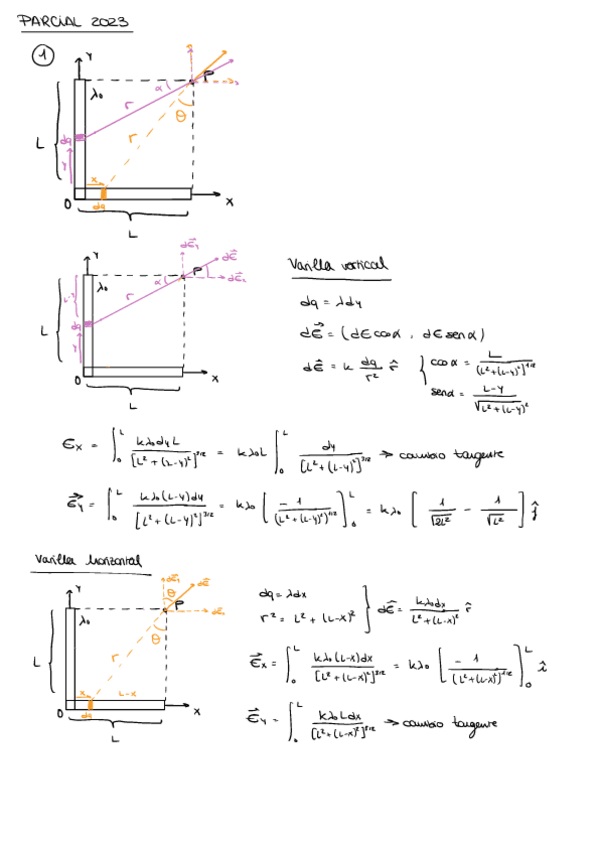 PARCIAL 2023
1
Y
λ₀
α
P
r
θ
r
L
dq
y
x
0
dq
X
L
Y
dE⃗y
dE⃗
λ₀
α
P
dE⃗x
L-y
r
L
dq
y
0
X
L
Varilla vertical
dq = λdy
dE⃗ = (dE cosα , dE senα)
dE⃗ = k dq/r² r̂ { cosα = L/(L²+(L-y)²)^1/2
senα = L-y/√(L²+(L-y)²)
Ex = ∫₀ᴸ kλ₀dyL/[L²+(L-y)²]^3/2 = kλ₀L ∫₀ᴸ dy/[L²+(L-y)²]^3/2 → cambio tangente
E⃗y = ∫₀ᴸ kλ₀(L-y)dy/[L²+(L-y)²]^3/2 = kλ₀ [ -1/(L²+(L-y)²)^1/2 ]₀ᴸ = kλ₀ [ 1/√2L² - 1/√L² ] ĵ
Varilla horizontal
Y
θ
dE⃗
P
λ₀
θ
r
L
x
L-x
0
dq
X
L
dq = λdx
r² = L² + (L-x)² } dE⃗ = kλ₀dx/L²+(L-x)² r̂
E⃗x = ∫₀ᴸ kλ₀(L-x)dx/[L²+(L-x)²]^3/2 = kλ₀ [ -1/(L²+(L-x)²)^1/2 ]₀ᴸ î
E⃗y = ∫₀ᴸ kλ₀Ldx/[L²+(L-x)²]^3/2 → cambio tangente